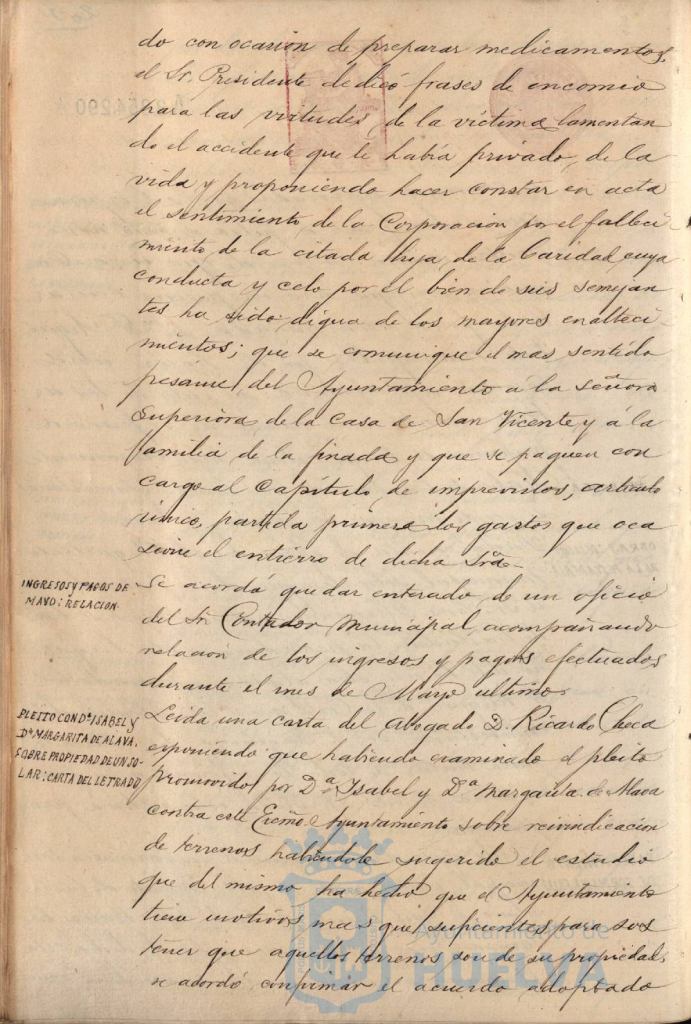 do con ocasion de preparar medicamentos,
el Sr. Presidente dedicó frases de encomio
para las virtudes de la víctima lamentan
do el accidente que le había privado de la
vida y proponiendo hacer constar en acta
el sentimiento de la Corporacion por el falleci-
miento de la citada hija de la Caridad cuya
conducta y celo por el bien de sus semejan
tes ha sido digna de los mayores enalteci-
mientos; que se comunique el mas sentido
pesame del Ayuntamiento á la señora
Superiora de la Casa de San Vicente y á la
familia de la finada y que se paguen con
cargo al Capítulo de imprevistos, artículo
único, partida primera los gastos que oca
sione el entierro de dicha Sra.
INGRESOS Y PAGOS DE
MAYO: RELACION.
Se acordó quedar enterado de un oficio
del Sr. Contador Municipal, acompañando
relacion de los ingresos y pagos efectuados
durante el mes de Mayo ultimo.
PLEITO CON Dª ISABEL Y
Dª MARGARITA DE ALAVA,
SOBRE PROPIEDAD DE UN SO-
LAR: CARTA DEL LETRADO
Leida una carta del abogado D. Ricardo Checa
exponiendo que habiendo examinado el pleito
promovido por Dª Isabel y Dª Margarita de Alava
contra este Excmo. Ayuntamiento sobre reivindicacion
de terrenos habiendole sugerido el estudio
que del mismo ha hecho que el Ayuntamiento
tiene motivos mas que suficientes para sos
tener que aquellos terrenos son de su propiedad,
se acordó confirmar el acuerdo adoptado
Ayuntamiento de
HUELVA